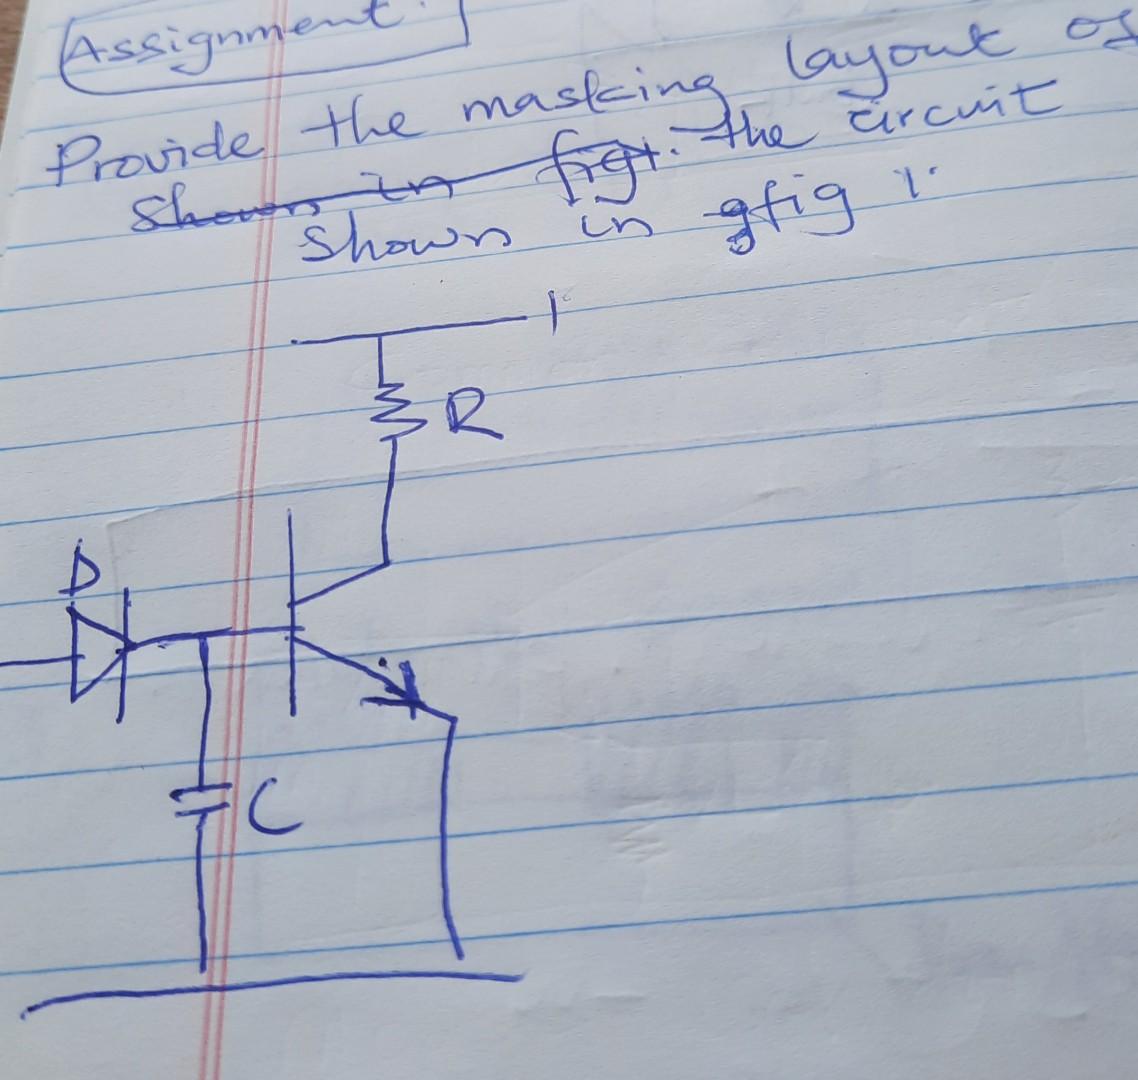 Assignment.
Provide the masking layout of
shown in fig1. the circuit
shown in gfig 1.
R
D
C